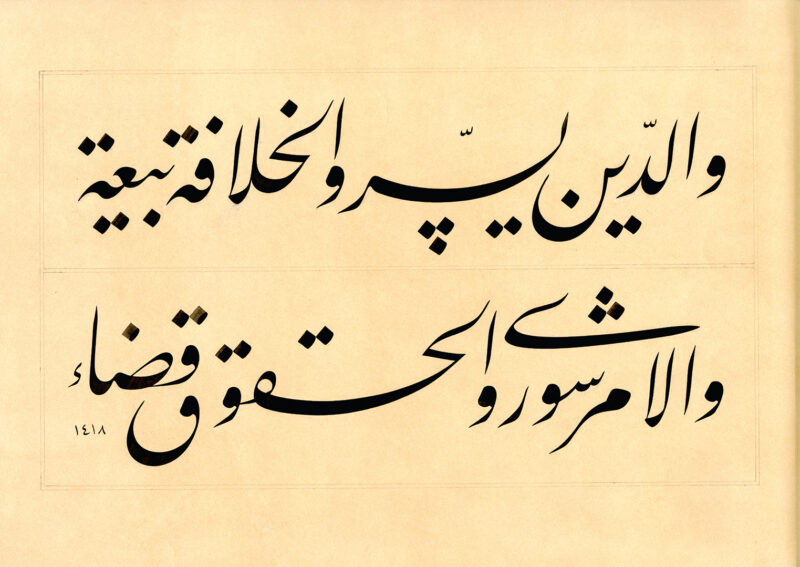 والدّين يسّر والخلافة بيعة
والامر شورى والحقوق قضاء
١٤١٨